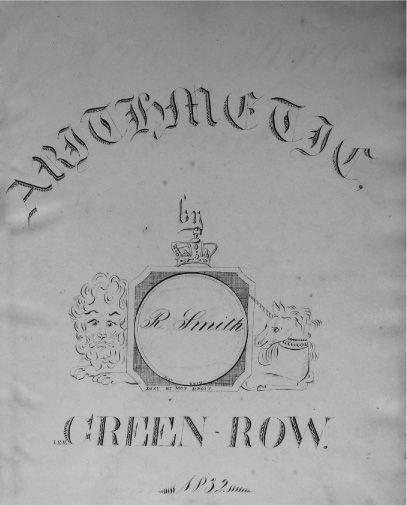 ARITHMETIC,
by
R. Smith
DIEU ET MON DROIT
GREEN-ROW.
1832